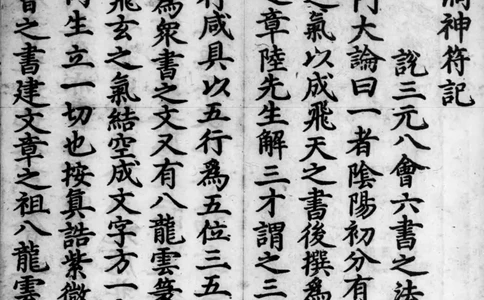 洞神符記
說三元八會六書之法
門大論曰一者陰陽初分有
之氣以成飛天之書後撰爲
之章陸先生解三才謂之三
行咸具以五行爲五位三五
爲衆書之文又有八龍雲篆
飛玄之氣結空成文字方一
内生立一切也按真誥紫微
會之書建文章之祖八龍雲